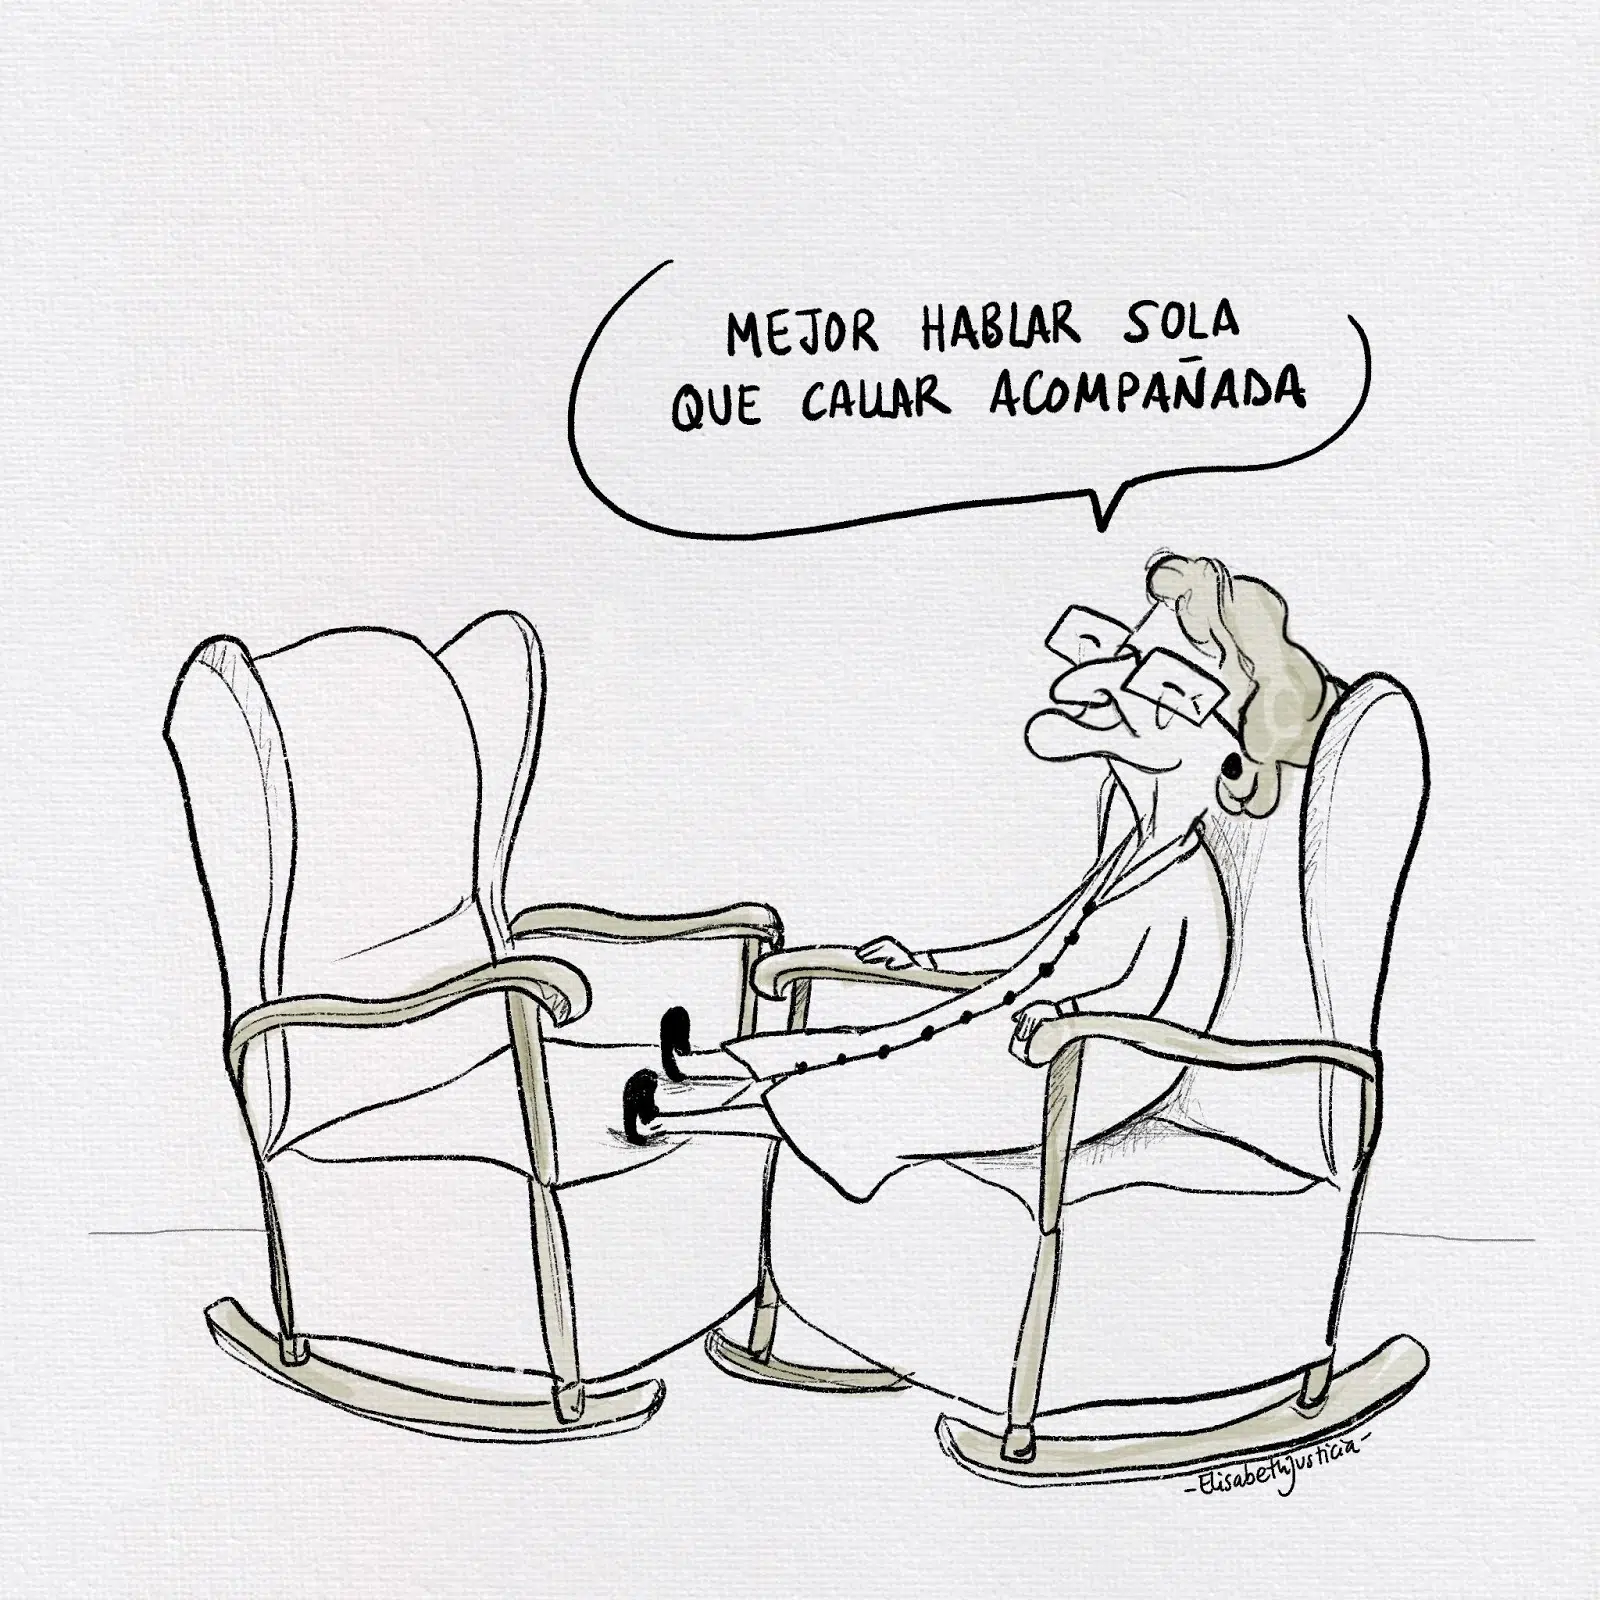 MEJOR HABLAR SOLA
QUE CALLAR ACOMPAÑADA
-Elisabeth Justicia-